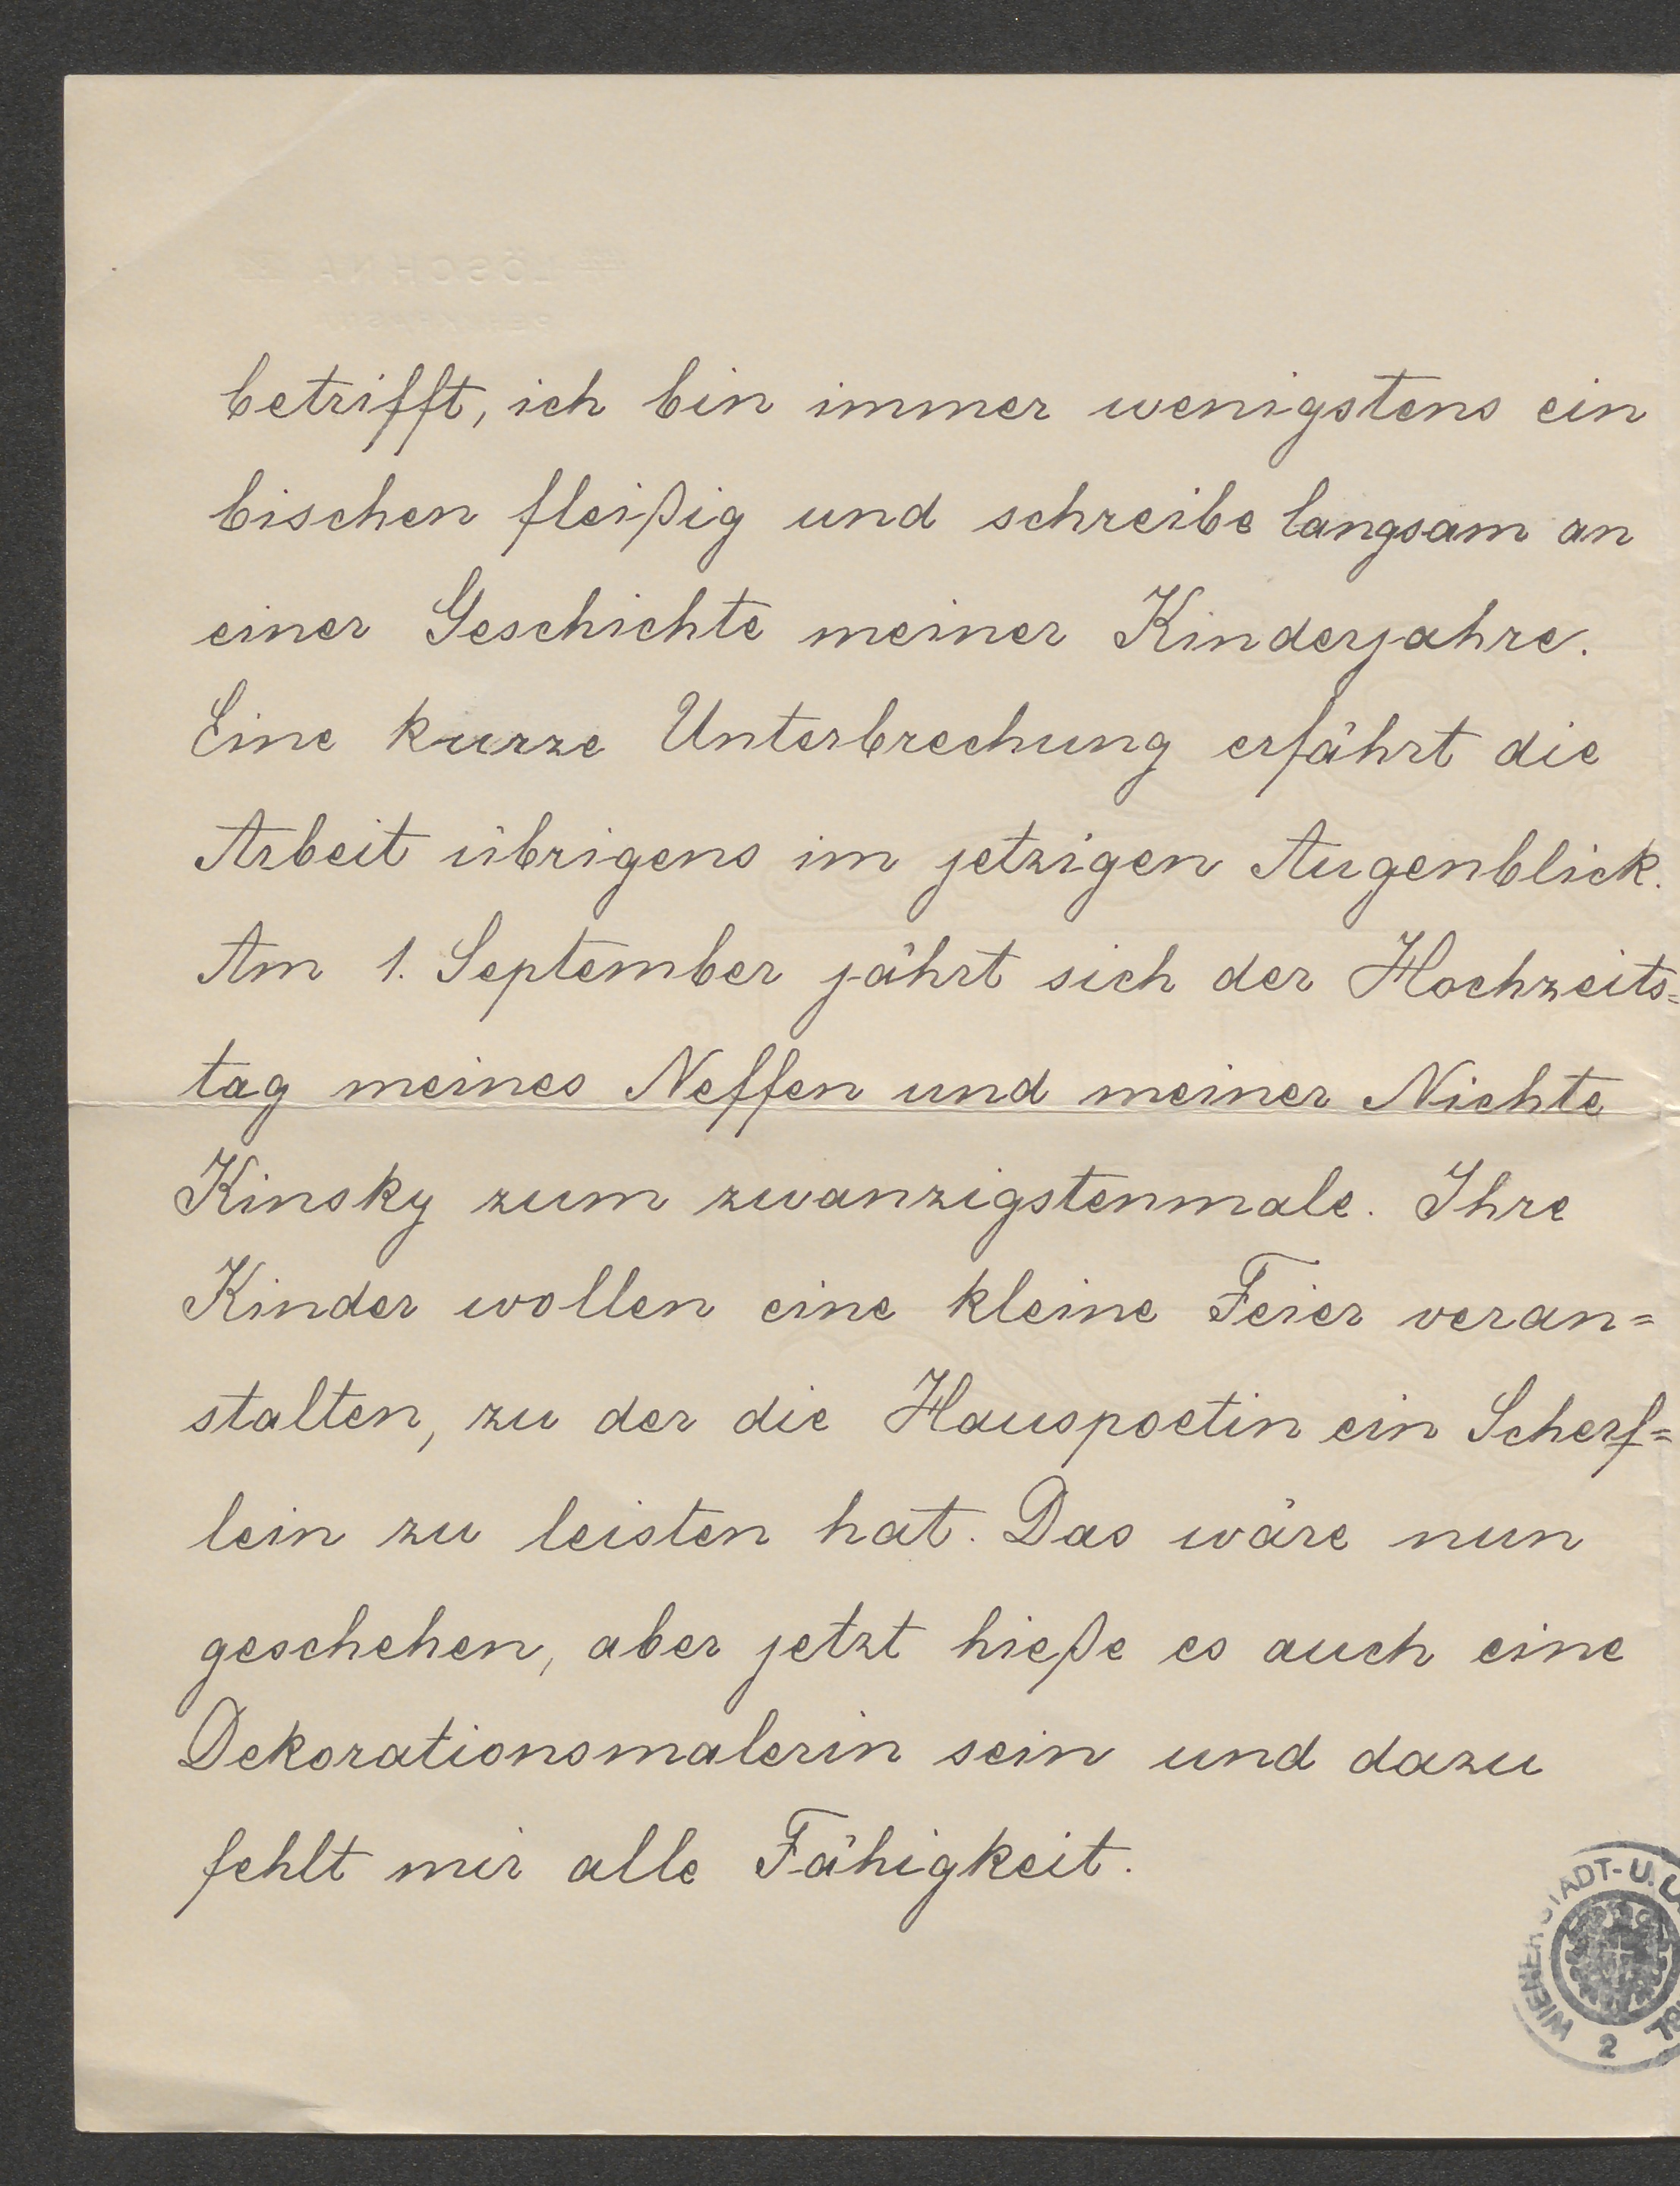 LÖSCHNA
betrifft, ich bin immer wenigstens ein
bischen fleißig und schreibe langsam an
einer Geschichte meiner Kinderjahre.
Eine kurze Unterbrechung erfährt die
Arbeit übrigens im jetzigen Augenblick.
Am 1. September jährt sich der Hochzeits=
tag meines Neffen und meiner Nichte
Kinsky zum zwanzigstenmale. Ihre
Kinder wollen eine kleine Feier veran=
stalten, zu der die Hauspoetin ein Scherf=
lein zu leisten hat. Das wäre nun
geschehen, aber jetzt hieße es auch eine
Dekorationsmalerin sein und dazu
fehlt mir alle Fähigkeit.
WIENER STADT- U.
2